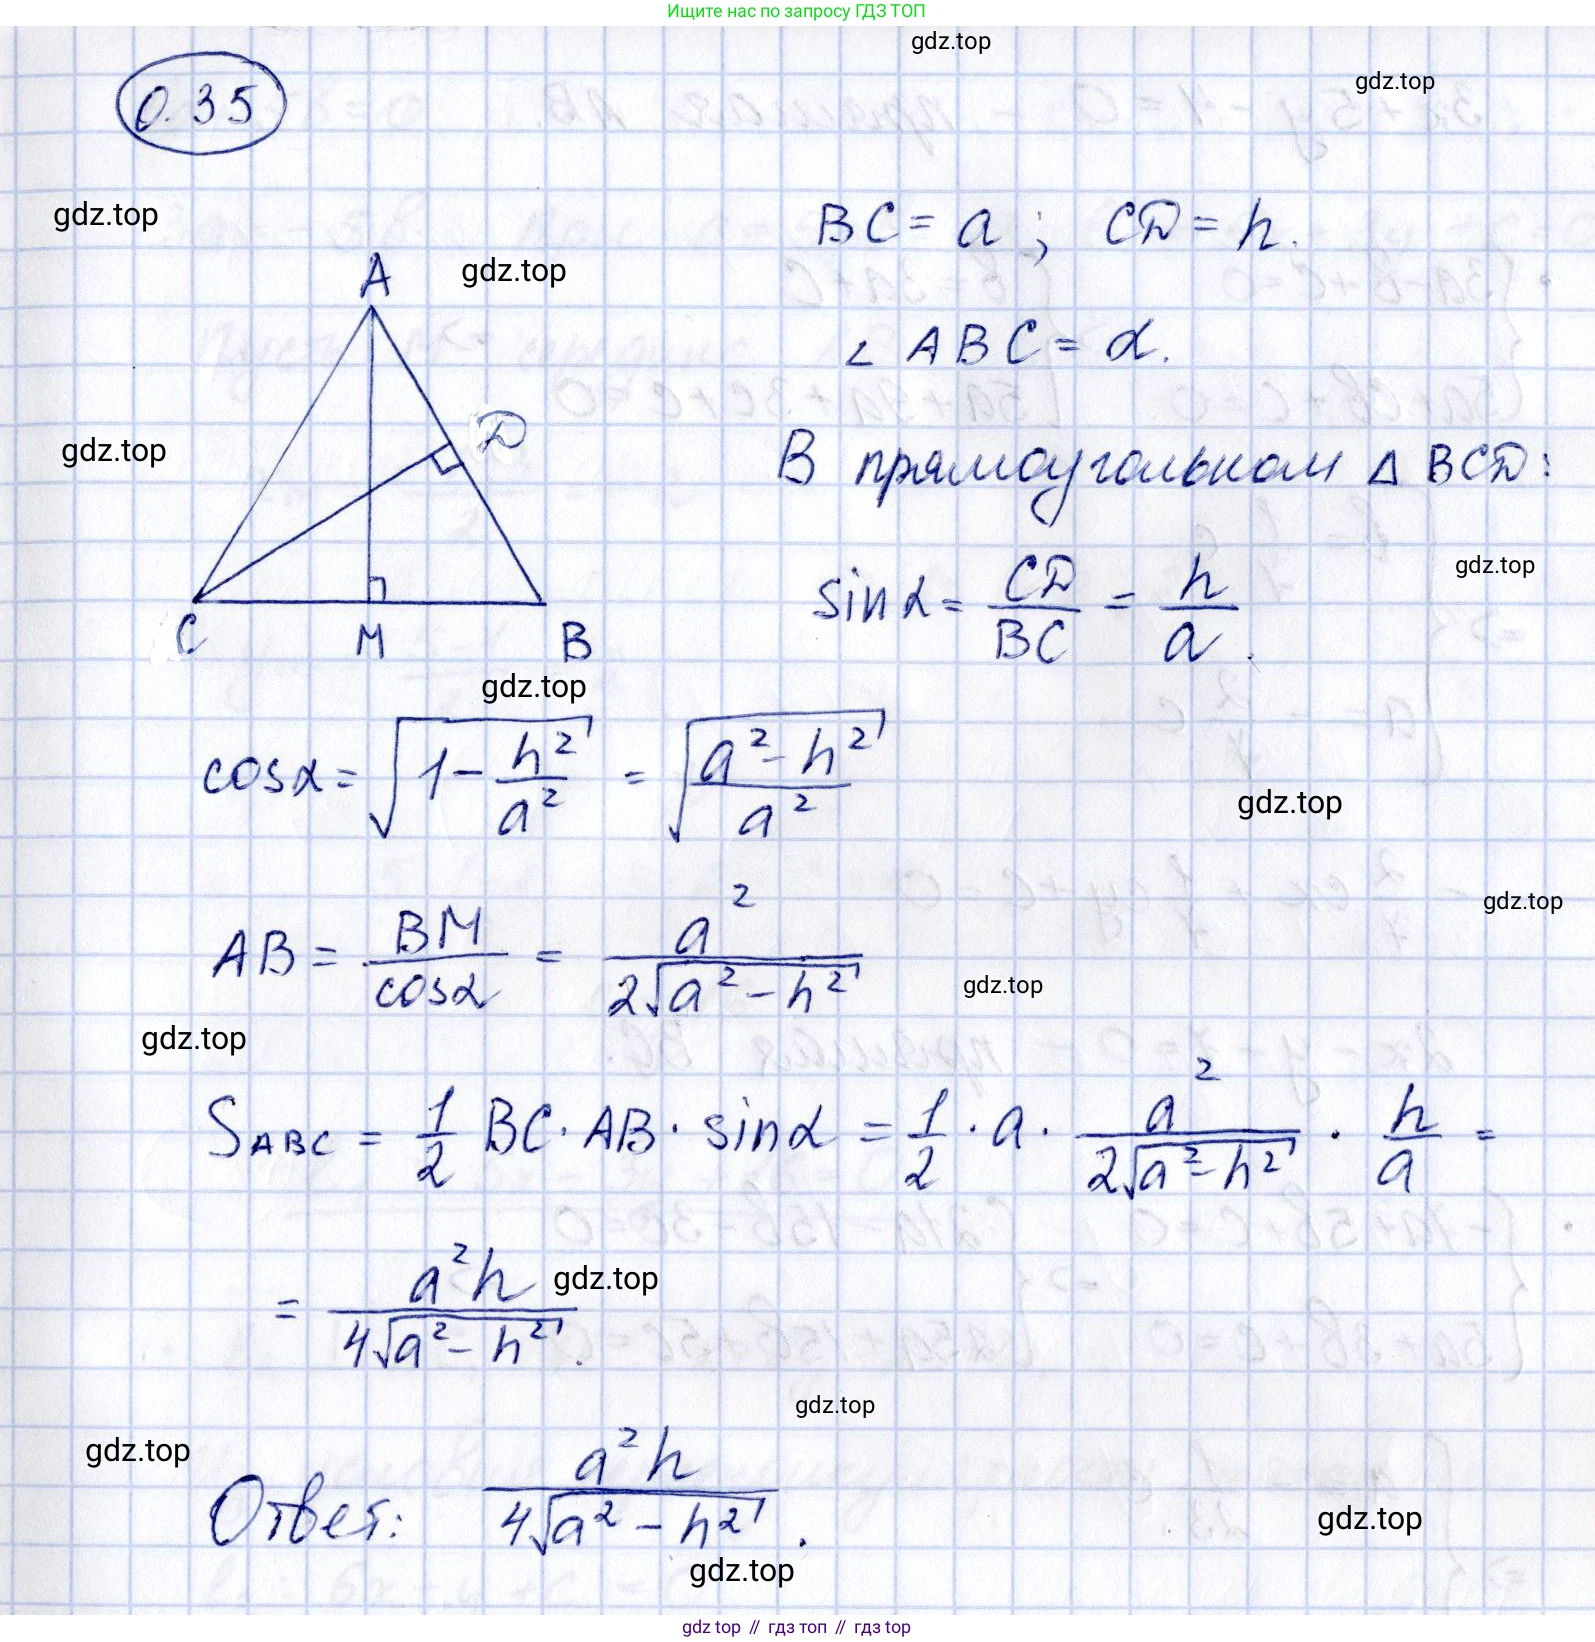 Ищите нас по запросу ГДЗ ТОП
gdz.top
gdz.top
0.35
gdz.top
BC = a ; CD = h.
A
gdz.top
∠ ABC = α.
D
gdz.top
В прямоугольном Δ BCD:
sinα = CD/BC = h/a.
gdz.top
C M B
gdz.top
cosα = √(1 - h²/a²) = √((a² - h²)/a²)
gdz.top
gdz.top
AB = BM/cosα = a²/(2√(a² - h²))
gdz.top
gdz.top
S ABC = 1/2 BC · AB · sinα = 1/2 · a · a²/(2√(a² - h²)) · h/a =
= a²h/(4√(a² - h²)).
gdz.top
gdz.top
gdz.top
Ответ: a²h/(4√(a² - h²)).
gdz.top
gdz.top
gdz top // гдз топ // gdz top